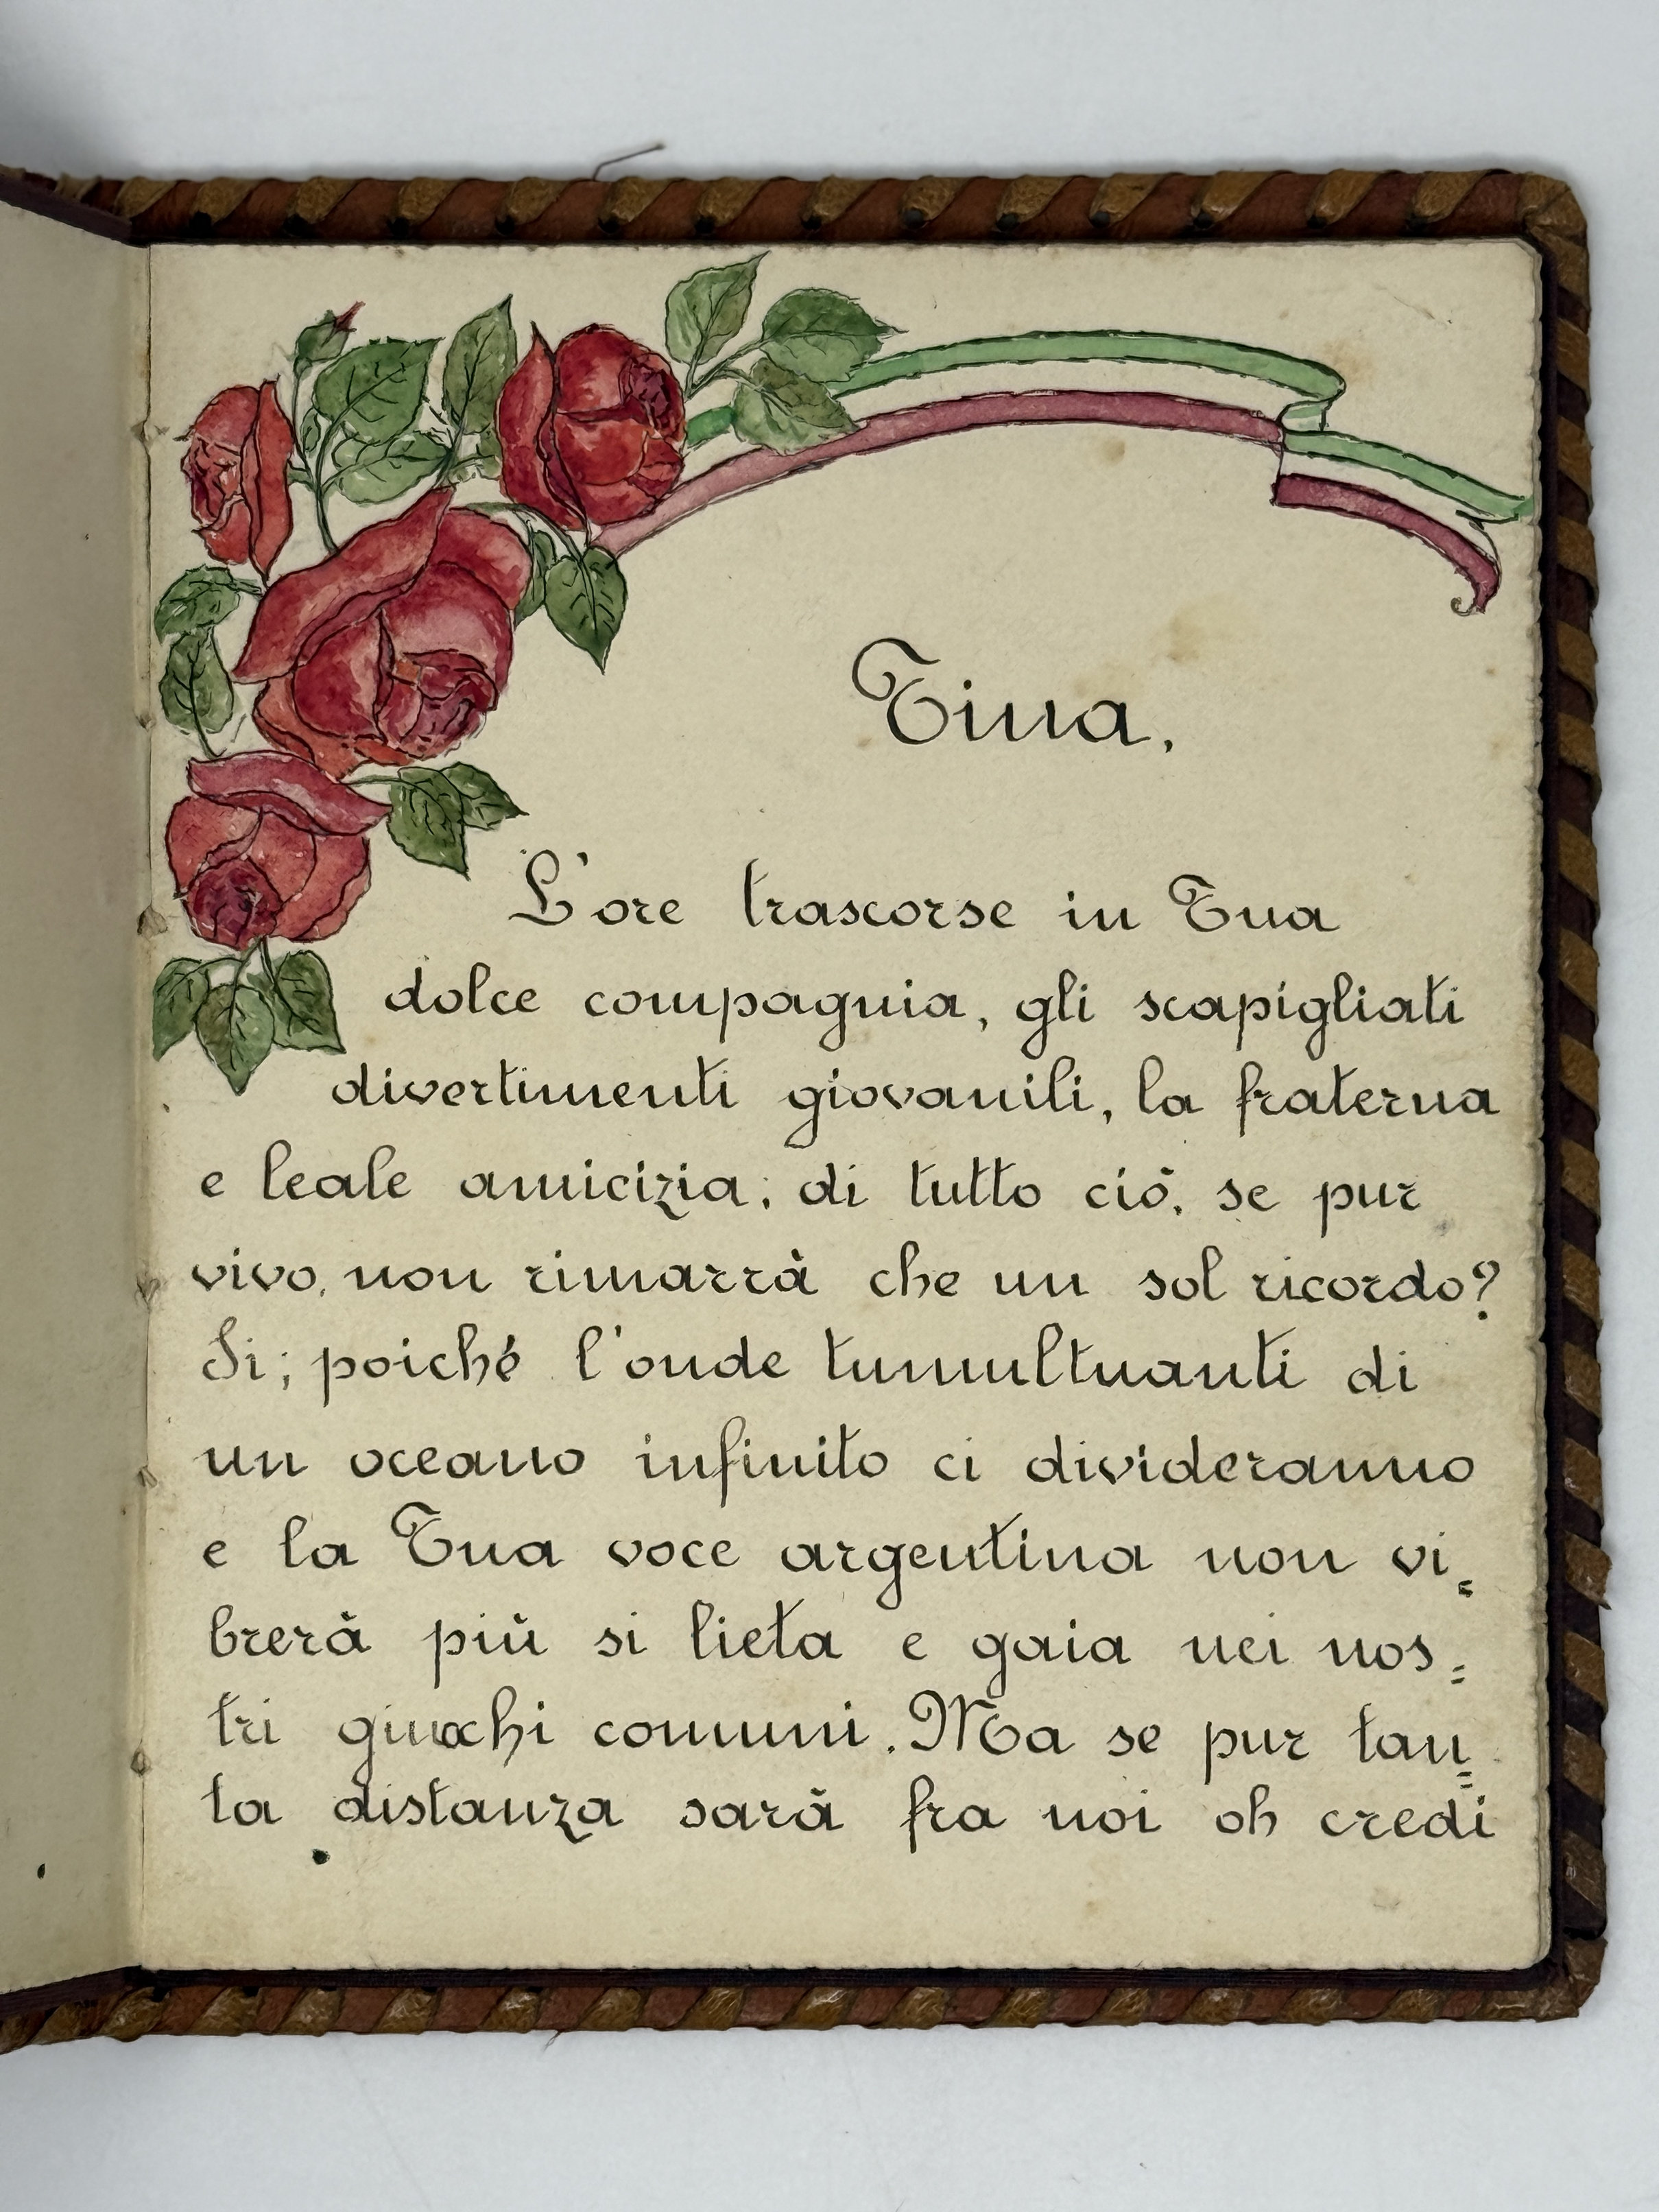 Tina,
L'ore trascorse in Tua
dolce compagnia, gli scapigliati
divertimenti giovanili, la fraterna
e leale amicizia; di tutto ciò, se pur
vivo, non rimarrà che un sol ricordo?
Si; poiché l'onde tumultuanti di
un oceano infinito ci divideranno
e la Tua voce argentina non vi=
brerà più si lieta e gaia nei nos=
tri giuochi comuni. Ma se pur tan=
ta distanza sarà fra noi oh credi